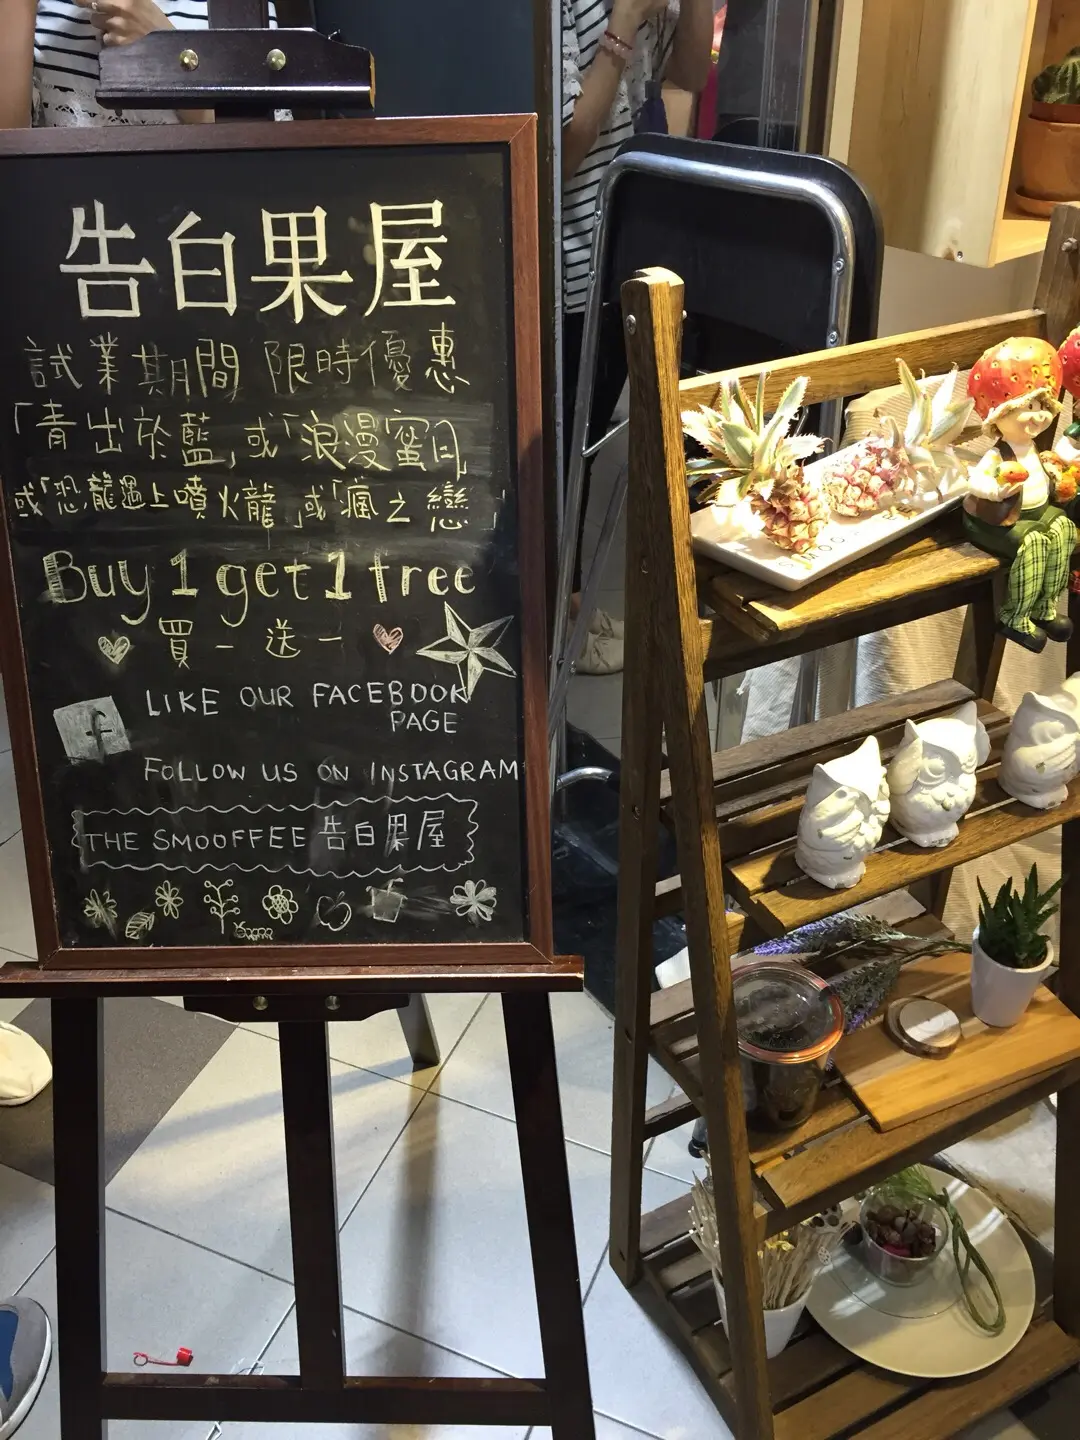 告白果屋
試業期間 限時優惠
「青出於藍」或「浪漫蜜月」
或「恐龍遇上噴火龍」或「瘋之戀」
Buy 1 get 1 free
買一送一
f
LIKE OUR FACEBOOK
PAGE
FOLLOW US ON INSTAGRAM
THE SMOOFFEE 告白果屋